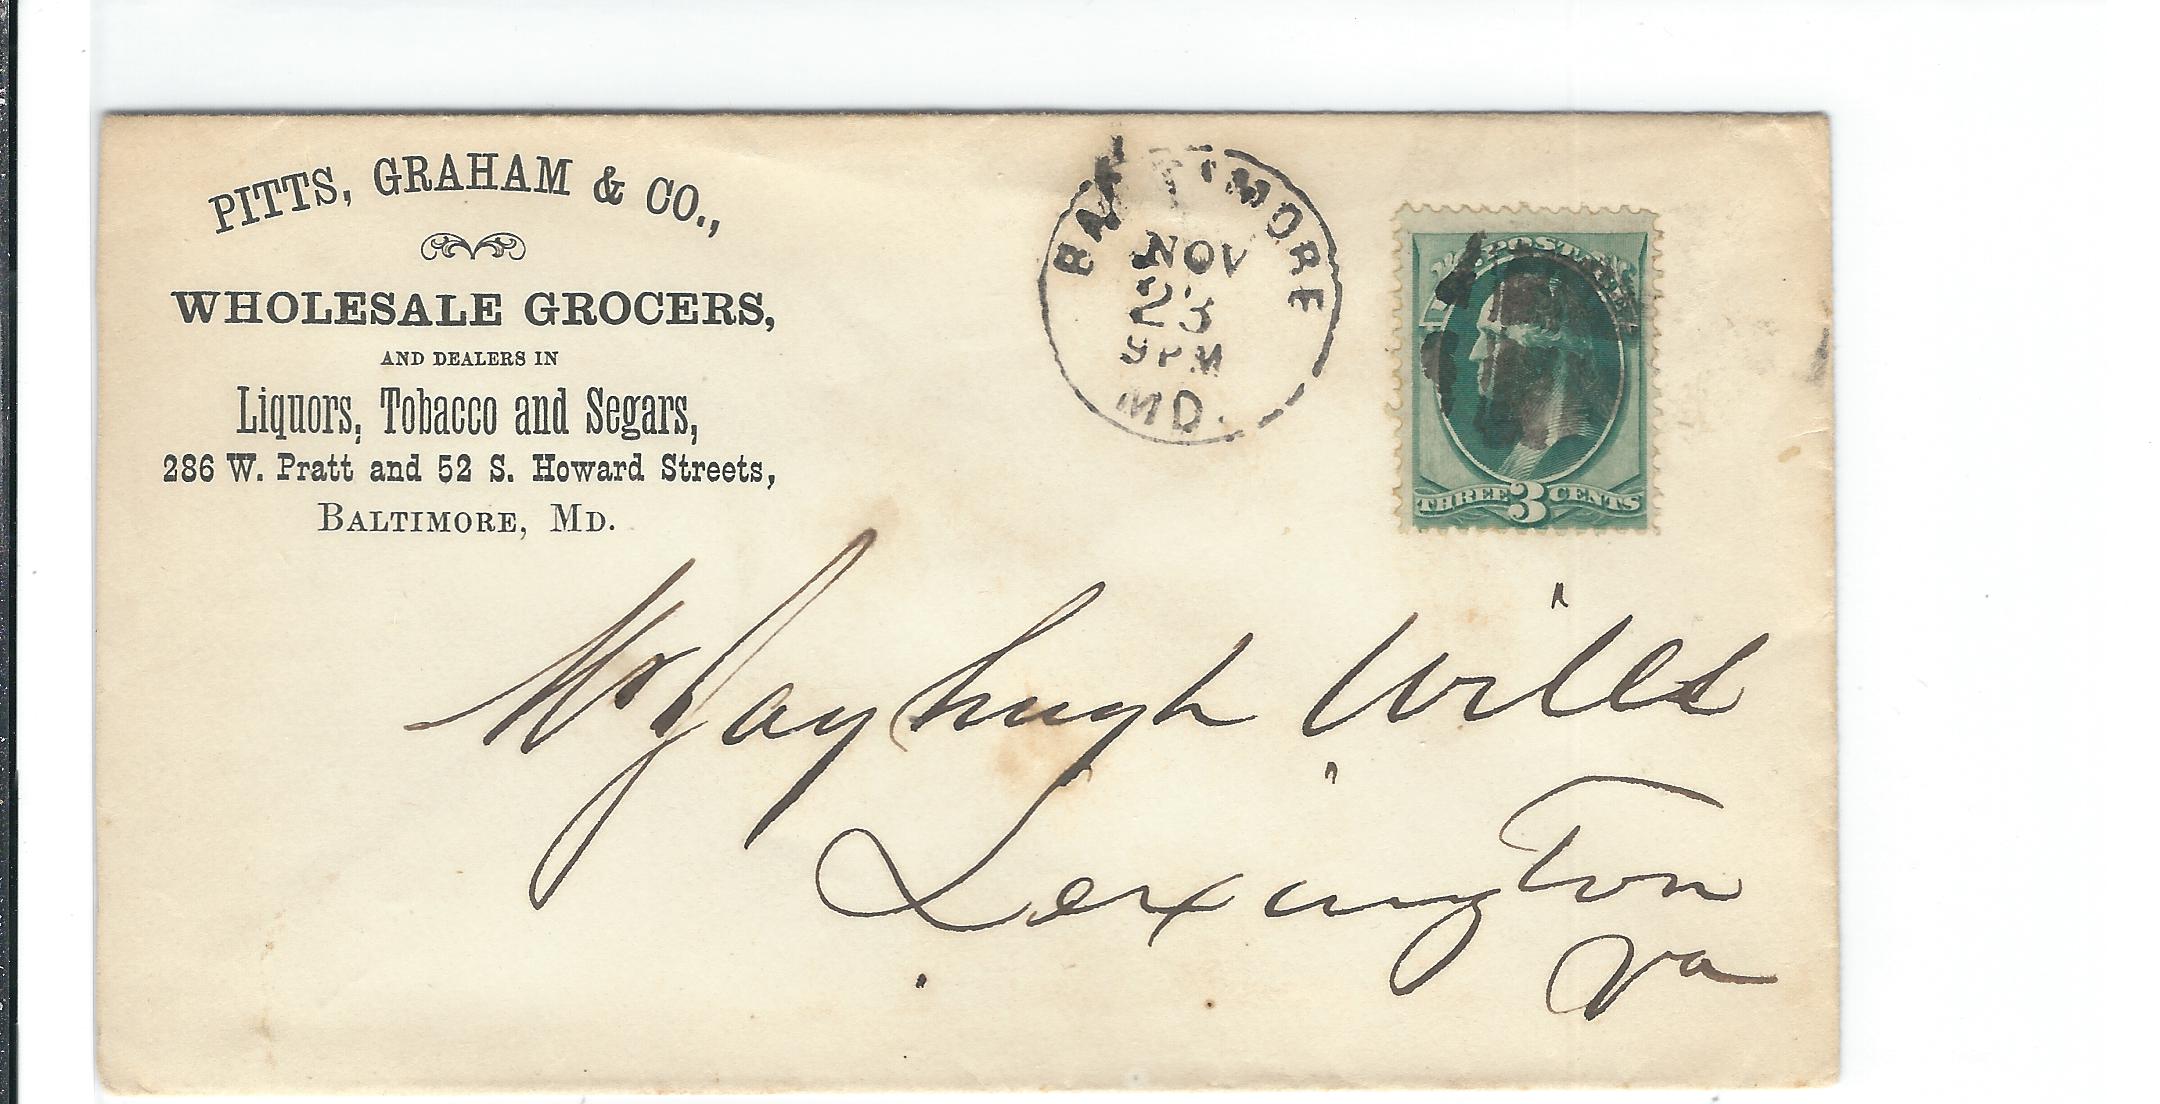 PITTS, GRAHAM & CO.,
WHOLESALE GROCERS,
AND DEALERS IN
Liquors, Tobacco and Segars,
286 W. Pratt and 52 S. Howard Streets,
BALTIMORE, MD.
BALTIMORE
NOV
23
9PM
MD.
U.S. POSTAGE
THREE 3 CENTS
Mr Jay hugh Wills
Lexington
Va